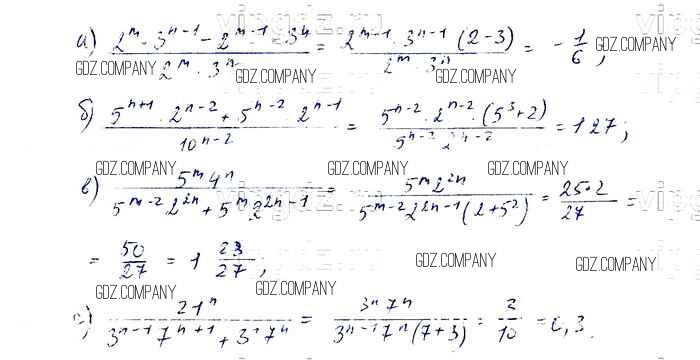 а) (2^m · 3^(n-1) - 2^(m-1) · 3^n) / (2^m · 3^n) = (2^(m-1) · 3^(n-1) (2-3)) / (2^m · 3^n) = -1/6;
б) (5^(n+1) · 2^(n-2) + 5^(n-2) · 2^(n-1)) / 10^(n-2) = (5^(n-2) · 2^(n-2) · (5^3+2)) / (5^(n-2) 2^(n-2)) = 127;
в) (5^m 4^n) / (5^(m-2) 2^(2n) + 5^m 2^(2n-1)) = (5^m 2^(2n)) / (5^(m-2) 2^(2n-1) (2+5^2)) = (25·2)/27 =
= 50/27 = 1 23/27;
21^n / (3^(n-1) 7^(n+1) + 3^n 7^n) = (3^n 7^n) / (3^(n-1) 7^n (7+3)) = 3/10 = 0,3.
GDZ.COMPANY
GDZ.COMPANY
GDZ.COMPANY
GDZ.COMPANY
GDZ.COMPANY
GDZ.COMPANY
GDZ.COMPANY
GDZ.COMPANY
GDZ.COMPANY
GDZ.COMPANY
GDZ.COMPANY